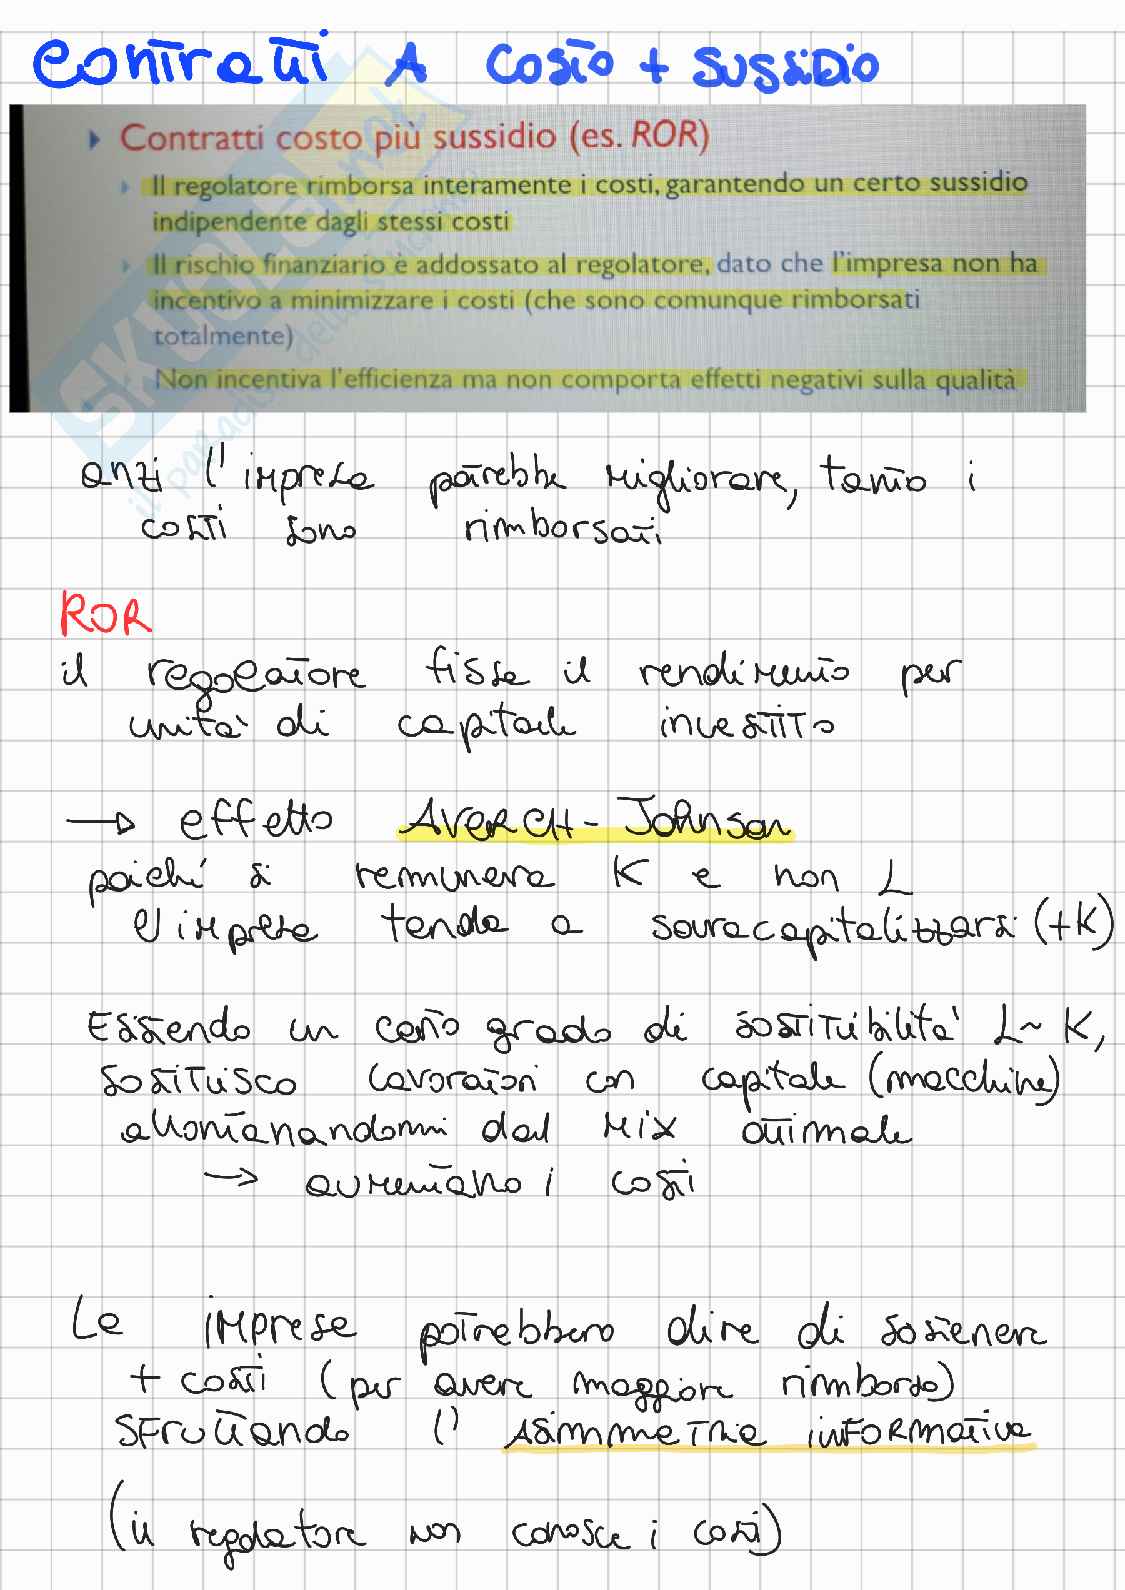 Contratti A Costo + Sussidio
Contratti costo più sussidio (es. ROR)
Il regolatore rimborsa interamente i costi, garantendo un certo sussidio
indipendente dagli stessi costi
Il rischio finanziario è addossato al regolatore, dato che l'impresa non ha
incentivo a minimizzare i costi (che sono comunque rimborsati
totalmente)
Non incentiva l'efficienza ma non comporta effetti negativi sulla qualità
anzi l'impresa potrebbe migliorare, tanto i
costi sono rimborsati
ROR
il regolatore fissa il rendimento per
unità di capitale investito
→ effetto AVERCH-Johnson
poiché si remunera K e non L
l'impresa tende a sovracapitalizzarsi (+K)
Essendo un certo grado di sostituibilità L~K,
sostituisco lavoratori con capitale (macchine)
allontanandomi dal mix ottimale
→ aumentano i costi
Le imprese potrebbero dire di sostenere
+ costi (per avere maggiore rimborso)
sfruttando l'asimmetria informativa
(il regolatore non conosce i costi)